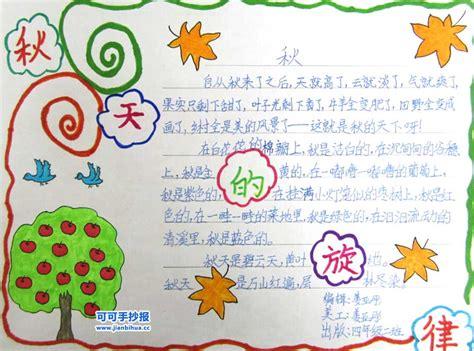 秋
天
的
旋
律
秋
自从秋来了之后，天就高了，云就淡了，气就爽了，
果实只剩下甜了，叶子光剩下黄了，牛羊全变肥了，田野全变成
画了，乡村全是美的风景了——这就是秋的天下呀！
在白花花的棉上，秋是洁白的，在沉甸甸的谷穗
上，秋是黄的，在一嘟噜一嘟噜的葡萄上，
秋是紫色的，在挂满小灯笼似的枣树上，秋是红
色的，在一畦一畦的菜地里，秋是绿色的，在汩汩流动的
清溪里，秋是蓝色的。
秋天是碧云天，黄叶地。
秋天是万山红遍，层林尽染
编辑：姜亚彤
美工：姜亚彤
出版：四年级二班
可可手抄报
www.jianbihua.cc